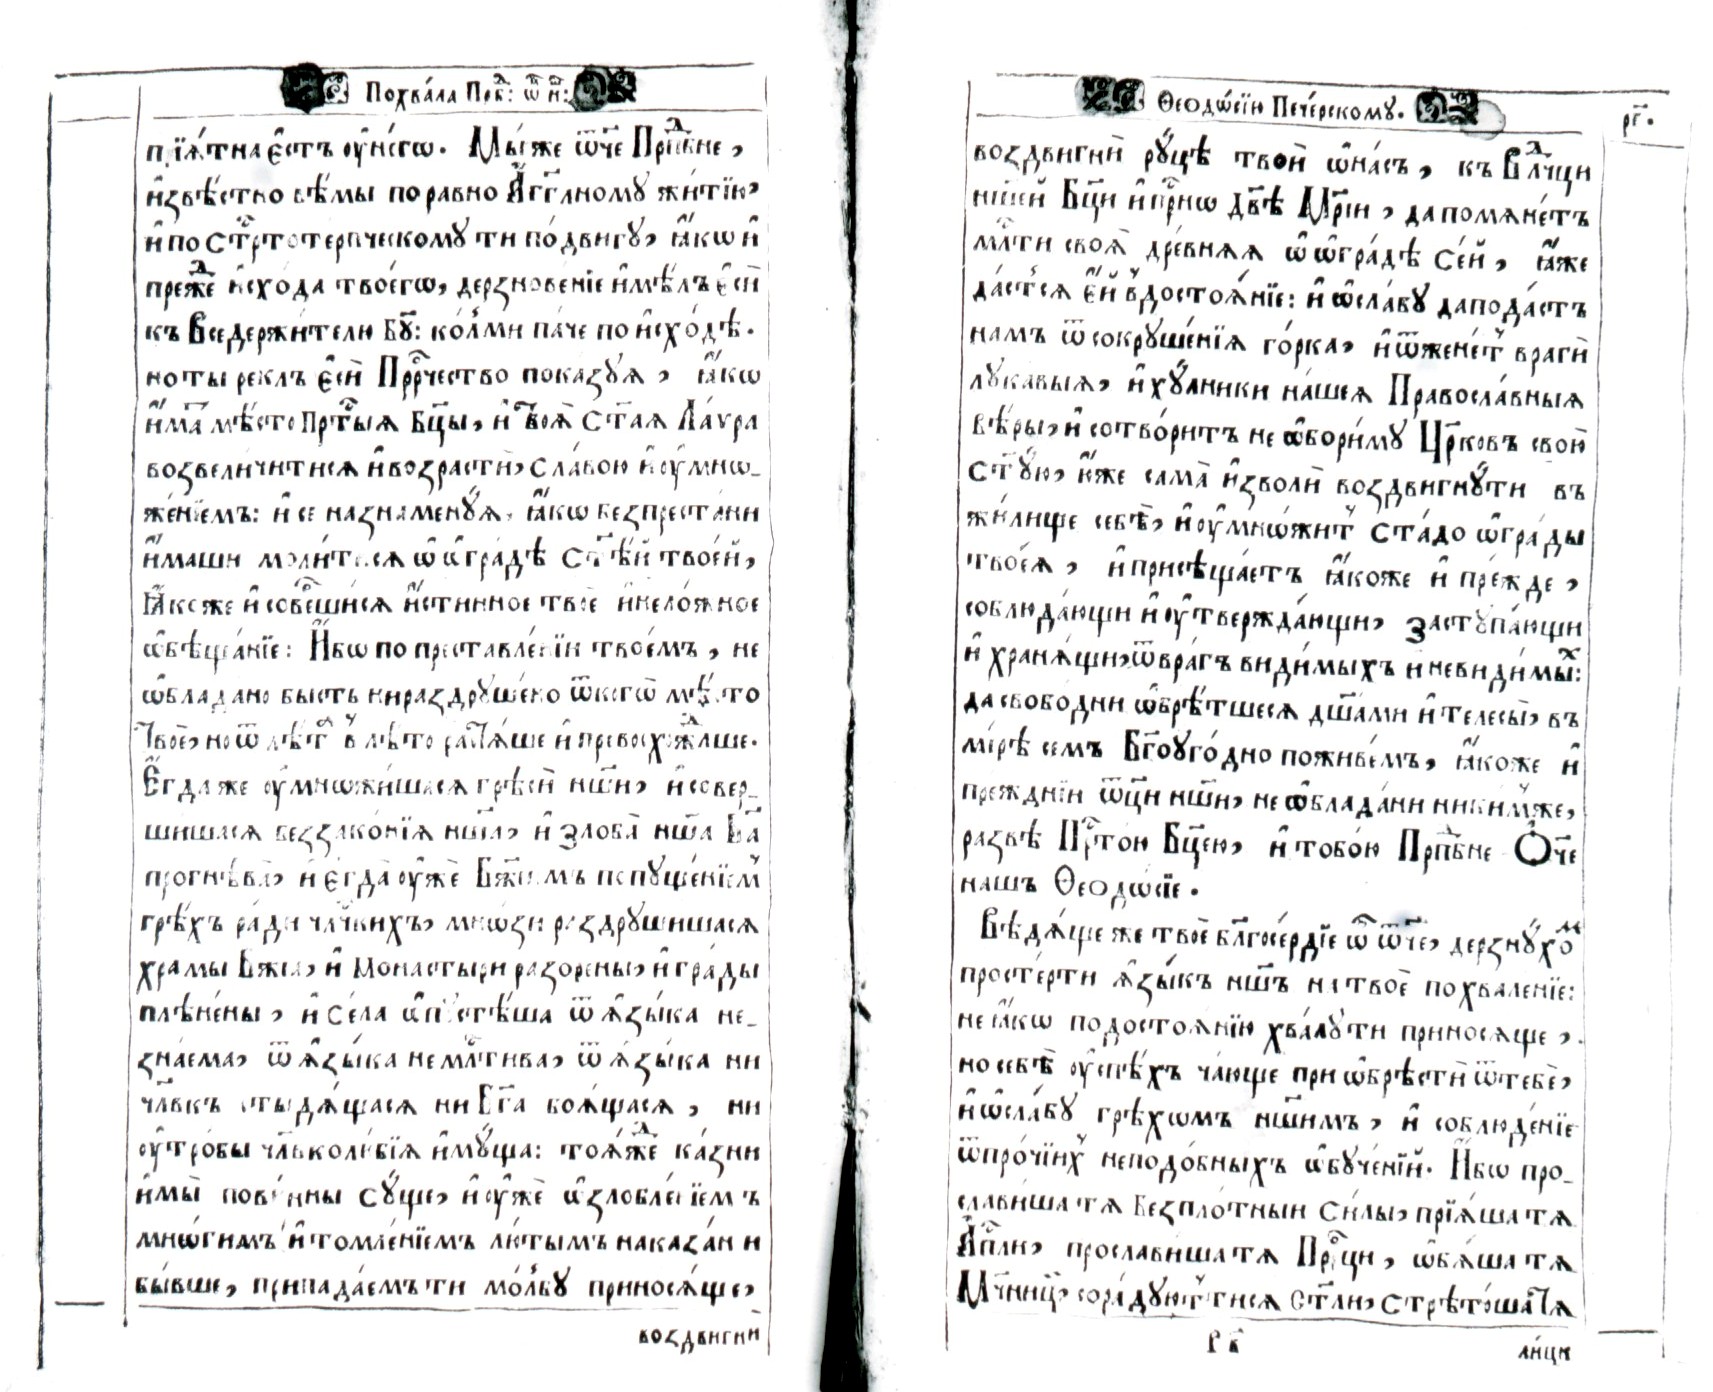 Похва́ла Прⷣбⷩ: ѡ҆ц҃ꙋ нш҃:
прїѧ́тна є҆́стъ ᲂу҆ негѡ̀. Мы́ же ѿч҃е Прпⷣбне,
и҆звѣ́стно вѣ́мы по равно А҆́гг҃лномꙋ житїю̀,
и҆ по Стрⷭ҇тотерпческомꙋ ти по́двигꙋ, ꙗ҆́кѡ и҆
преⷤде и҆схо́да твоегѡ̀, дерзнове́нїе и҆мѣ́лъ є҆сѝ
къ Вседержи́телю Бг҃ꙋ: ко́лми па́че по и҆схо́дѣ.
но ты рекл҄ъ є҆сѝ Прⷪ҇рчество показꙋѧ, ꙗ҆́кѡ
и҆́мать мѣ́сто Прⷭ҇тыѧ Бц҃ы, и҆ Твоѧ̀ Ст҃аѧ Ла́ѵра
возвели́читисѧ и҆ возрастѝ, сла́вою и҆ ᲂу҆мнѡ-
же́нїемъ: и҆ се назнаменꙋ́ѧ, ꙗ҆́кѡ безпреста́ни
и҆́маши моли́тисѧ ѡ҆ ѡ҆гра́дѣ Ст҃ѣ́й твое́й,
Ꙗ҆́коже и҆ соверши́сѧ и҆́стинное твоѐ и҆ нело́жное
ѡ҆бѣща́нїе: И҆́бѡ по преставле́нїи твое́мъ, не
ѡ҆бладано̀ бысть ни раздрꙋше́но ѿ когѡ̀ мѣ́сто
Твоѐ, но ѿ лѣ́тъ в лѣ́то растѧ́ше и҆ превосхожда́ше.
Е҆гда́ же ᲂу҆мно́жишасѧ грѣсѝ нш҃и, и҆ совер-
шишасѧ беззако́нїѧ нш҃а, и҆ зло́ба нш҃а Бг҃а
прогнѣ́ва, и҆ є҆гда̀ ᲂу҆жѐ Бж҃їимъ попꙋще́нїемъ
грѣ́хъ ра́ди чл҃чкихъ, мнѡ́зи раздрꙋши́шасѧ
хра́мы Бж҃їа, и҆ Монастырѝ разоре́ны, и҆ гра́ды
плѣне́ны, и҆ се́ла ѡ҆пꙋстѣ́ша ѿ ꙗ҆зы́ка не-
зна́ема, ѿ ꙗ҆зы́ка немлⷭ҇тива, ѿ ꙗ҆зы́ка ни
чл҃вкъ стыдѧ́щасѧ ни Бг҃а боѧ́щасѧ, ни
ᲂу҆тро́бы чл҃вколю́бїѧ и҆мꙋ́ща: тоѧ́же ка́зни
и҆ мы̀ пови́нны сꙋ́ще, и҆ ᲂу҆жѐ ѡ҆злобле́нїемъ
мнѡ́гимъ и҆ томле́нїемъ лю́тымъ наказа́ни
бы́вше, припада́емъ ти мо́лбꙋ принося́ще,
воздвигни̇̀
Ѳеодѡ́сїю Пече́рскомꙋ.
рг҃.
воздвигни̇̀ рꙋ́цѣ твоѝ ѡ҆ на́съ, къ Влⷣчци
нш҃ей Бц҃и и҆ прⷭ҇нѡ дв҃ѣ Мр҃їи, да помѧне́тъ
млⷭ҇ти своѧ̀ дре́внѧѧ ѡ҆ ѡ҆гра́дѣ се́й, ꙗ҆́же
да́стсѧ є҆́й в достоѧ́нїе: и҆ ѡ҆сла́бꙋ да пода́стъ
намъ ѿ сокрꙋше́нїѧ го́рка, и҆ ѿжене́тъ врагѝ
лꙋка́выѧ, и҆ хꙋ́лники на́шеѧ Правосла́вныѧ
вѣ́ры, и҆ сотвори́тъ не ѡ҆бори́мꙋ Цр҃ковъ свою̀
Ст҃ꙋю, ю҆́же сама̀ и҆зво́ли воздви́гнꙋти въ
жили́ще себѣ̀, и҆ ᲂу҆мнѡ́житъ Ста́до ѡ҆гра́ды
твое́ѧ, и҆ присѣща́етъ ꙗ҆́коже и҆ пре́жде,
соблюда́ющи и҆ ᲂу҆твержда́ющи, застꙋпа́ющи
и҆ хранѧ́щи, ѿ вра́гъ види́мыхъ и невиди́мыⷯ:
да свобо́дни ѡ҆брѣ́тшесѧ дш҃а́ми и҆ телесы̀, въ
мі́рѣ семъ Бг҃оуго́дно поживе́мъ, ꙗ҆́коже и҆
прежднїи ѿц҃и нш҃и, не ѡ҆блада́ни ники́мже,
развѣ̀ Прⷭ҇тою Бц҃ею, и҆ тобо́ю Прпⷣбне Ѻ҆́ч҃е
нашъ Ѳеодѡ́сїе.
Вѣ́дѧще же твоѐ блг҃осе́рдїе ѡ҆̑ ѿч҃е, дерзнꙋ́хоⷨ
просте́рти ꙗ҆зы́къ нш҃ъ на твоѐ похвале́нїе:
не ꙗ҆́кѡ по достоѧ́нїю хва́лꙋ ти принося́ще,
но себѣ̀ ᲂу҆спѣ́хъ ча́юще при ѡ҆брѣстѝ ѿ тебѐ,
и҆ ѡ҆сла́бꙋ грѣхѡ́мъ нш҃имъ, и҆ соблюде́нїе
ѿ про́чїихъ неподо́бныхъ ѡ҆бꙋче́нїй. И҆́бѡ про-
сла́виша тѧ Безпло́тныи Си́лы, прїѧ́ша тѧ
А҆пⷭ҇ли, просла́виша тѧ Прⷪ҇ци, ѡ҆б̾ѧ́ша тѧ
Мч҃ницы, сора́дꙋютъ тисѧ Ст҃ли, Стрѣто́ша Тѧ
Рв҃
ли́ци